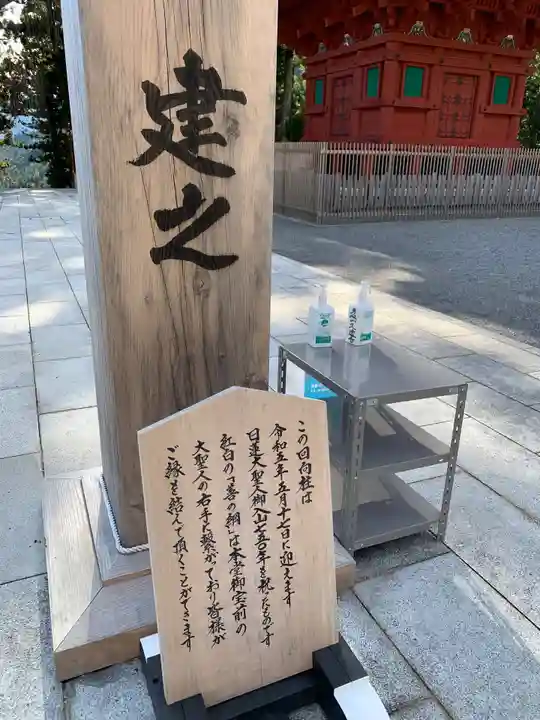 建之
この回向柱は
令和五年五月十七日に迎えます
日蓮大聖人御入山七五〇年を祝ったものです
紅白の「善の綱」は本堂御宝前の
大聖人の右手に繋がっており皆様が
ご縁を結んで頂くことができます